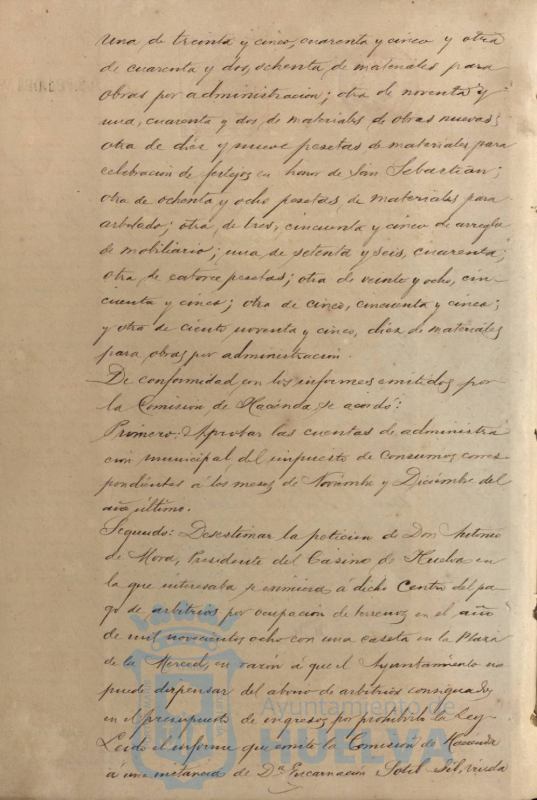 una de treinta y cinco, cuarenta y cinco y otra
de cuarenta y dos, ochenta, de materiales para
obras por administración; otra de noventa y
una, cuarenta y dos, de materiales de obras nuevas;
otra de diez y nueve pesetas de materiales para
celebración de festejos en honor de San Sebastian;
otra de ochenta y ocho pesetas de materiales para
arbolado; otra, de tres, cincuenta y cinco de arreglo
de mobiliario; una de setenta y seis, cuarenta;
otra de catorce pesetas; otra de veinte y ocho, cin-
cuenta y cinco; otra de cinco, cincuenta y cinco;
y otra de ciento noventa y cinco, diez de materiales
para obras por administración.
De conformidad con los informes emitidos por
la Comisión de Hacienda se acordó:
Primero: Aprobar las cuentas de administra
ción municipal del impuesto de Consumos, corres
pondientes á los meses de Noviembre y Diciembre del
año último.
Segundo: Desestimar la petición de Don Antonio
de Mora, Presidente del Casino de Huelva en
la que interesaba se eximiera á dicho Centro del pa-
go de arbitrios por ocupación de terrenos en el año
de mil novecientos ocho con una caseta en la Plaza
de la Merced, en razón á que el Ayuntamiento no
puede dispensar del abono de arbitrios consignados
en el presupuesto de ingresos por prohibirlo la Ley.
Leido el informe que emite la Comisión de Hacienda
á una instancia de Dª Encarnación Sotil viuda
Ayuntamiento de
HUELVA